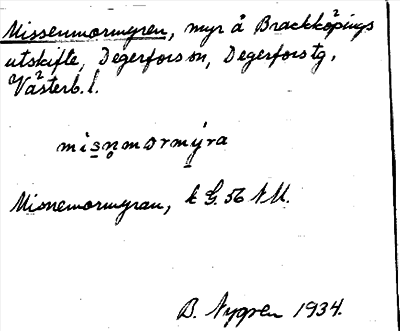 Missenmormyren, myr å Brackköpings
utskifte, Degerfors sn, Degerfors tg,
Västerb. l.
misn̥mormy̱ra
Misnemormyran, k G. 56 NM.
B. Nygren 1934.